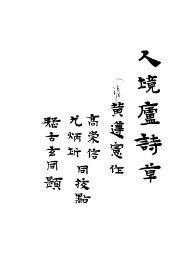 人境廬詩草
黃遵憲作
高崇信
尤炳圻
同校點
疑古玄同題